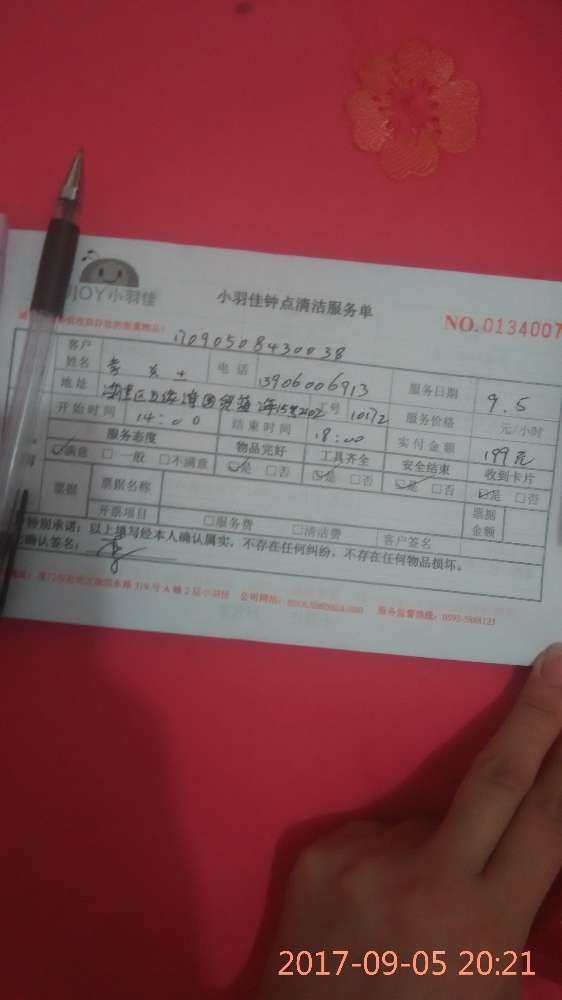 JOY小羽佳
小羽佳钟点清洁服务单
NO.0134007
17090508430038
客户姓名 电话 13906006913 服务日期 9.5
地址 工号 10172 服务价格 元/小时
开始时间 14:00 结束时间 18:00 实付金额 199元
服务态度 物品完好 工具齐全 安全结束 收到卡片
☑满意 □一般 □不满意 ☑是 □否 ☑是 □否 ☑是 □否 ☑是 □否
票据 票据名称 票据金额
开票项目 □服务费 □清洁费 客户签名
特别承诺:以上填写经本人确认属实,不存在任何纠纷,不存在任何物品损坏。
确认签名:
319号A幢2层小羽佳 公司网站: 服务监督热线:
2017-09-05 20:21